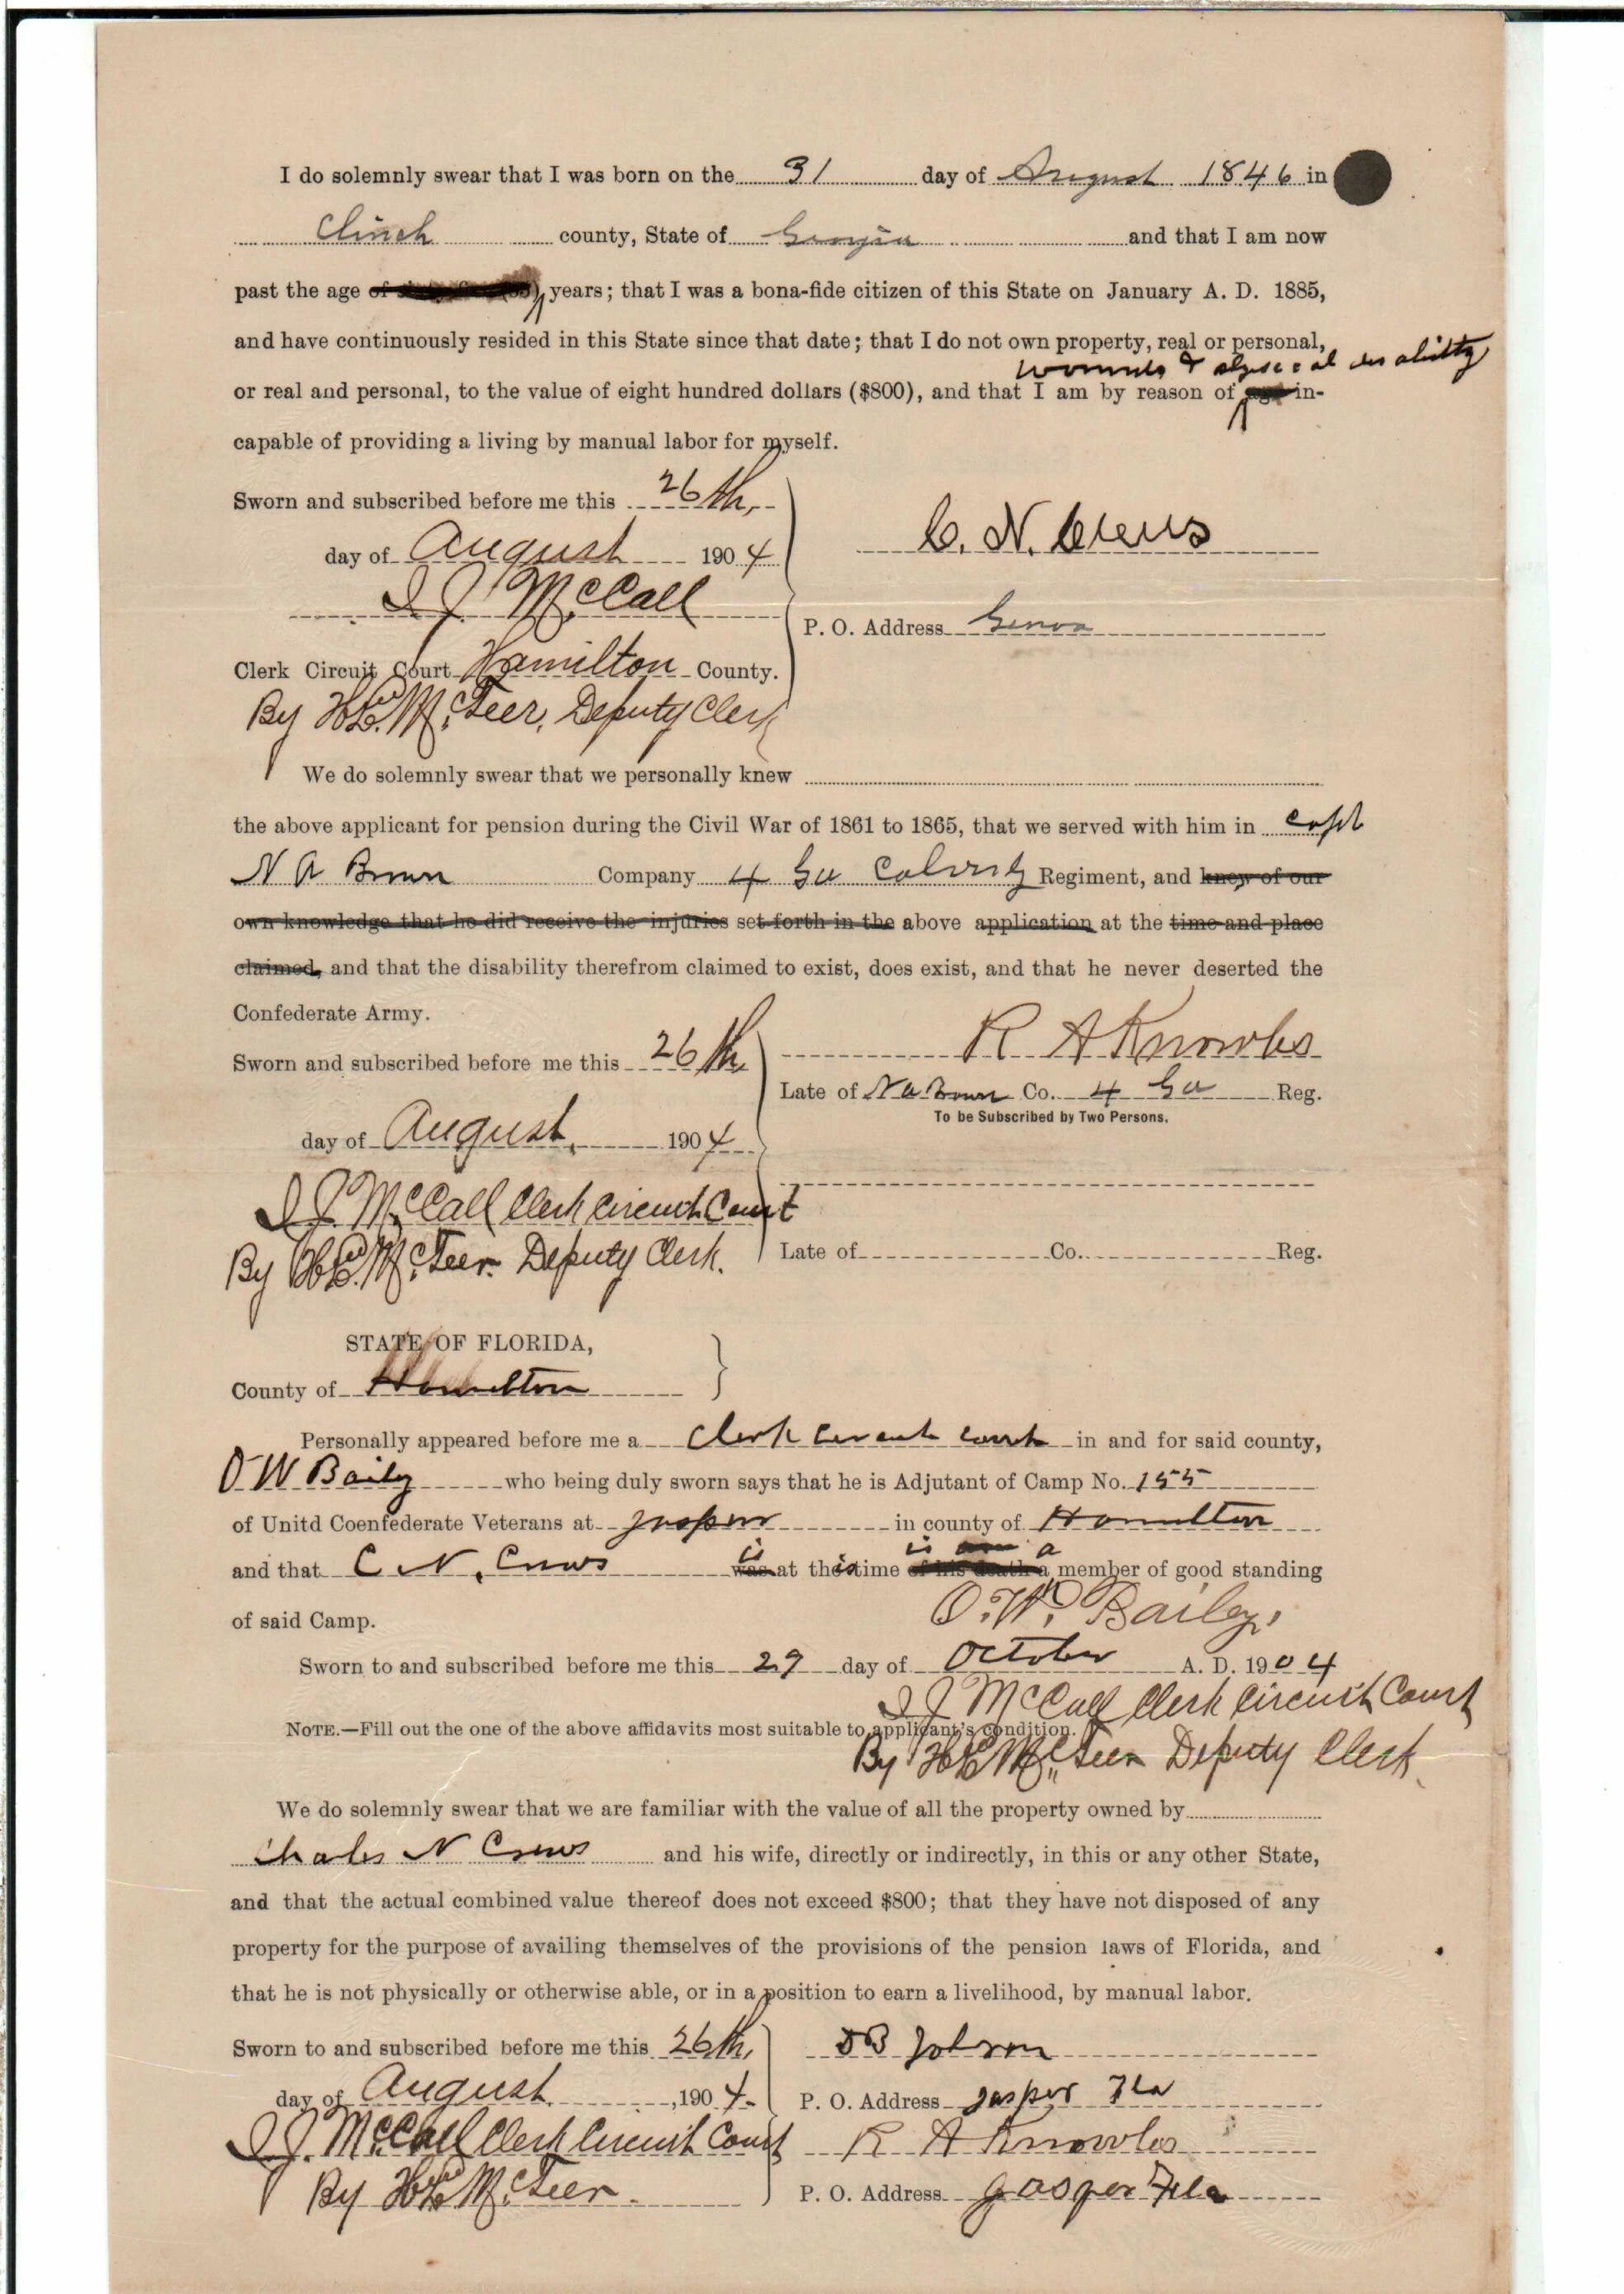 I do solemnly swear that I was born on the 31 day of August 1846 in
Clinch county, State of Georgia and that I am now
past the age of years; that I was a bona-fide citizen of this State on January A. D. 1885,
and have continuously resided in this State since that date; that I do not own property, real or personal,
wounds & physical disability
or real and personal, to the value of eight hundred dollars ($800), and that I am by reason of age in-
capable of providing a living by manual labor for myself.
Sworn and subscribed before me this 26th,
day of August 1904
C. N. Crews
I J McCall
P. O. Address Genoa
Clerk Circuit Court Hamilton County.
By McTeer, Deputy Clerk
We do solemnly swear that we personally knew
the above applicant for pension during the Civil War of 1861 to 1865, that we served with him in Capt
N A Brown Company 4 Ga Calvrty Regiment, and knew of our
own knowledge that he did receive the injuries set forth in the above application at the time and place
claimed, and that the disability therefrom claimed to exist, does exist, and that he never deserted the
Confederate Army.
Sworn and subscribed before me this 26th
R A Knowles
Late of N A Brown Co. 4 Ga Reg.
To be Subscribed by Two Persons.
day of August, 1904
I J. McCall Clerk Circuit Court
By McTeer. Deputy Clerk.
Late of Co. Reg.
STATE OF FLORIDA,
County of Hamilton
Personally appeared before me a Clerk Circuit court in and for said county,
O W Baily who being duly sworn says that he is Adjutant of Camp No. 155
of Unitd Coenfederate Veterans at Jasper in county of Hamilton
is is a
and that C N. Crews was at this time of his death a member of good standing
of said Camp.
O. W. Bailey,
Sworn to and subscribed before me this 29 day of October A. D. 1904
I J McCall Clerk Circuit Court
NOTE.—Fill out the one of the above affidavits most suitable to applicant's condition.
By McTeer Deputy Clerk
We do solemnly swear that we are familiar with the value of all the property owned by
Charles N Crews and his wife, directly or indirectly, in this or any other State,
and that the actual combined value thereof does not exceed $800; that they have not disposed of any
property for the purpose of availing themselves of the provisions of the pension laws of Florida, and
that he is not physically or otherwise able, or in a position to earn a livelihood, by manual labor.
Sworn to and subscribed before me this 26th,
D B Johnson
day of August, 1904.
P. O. Address Jasper Fla
I J. McCall Clerk Circuit Court
R A Knowles
By McTeer.
P. O. Address Jasper Fla